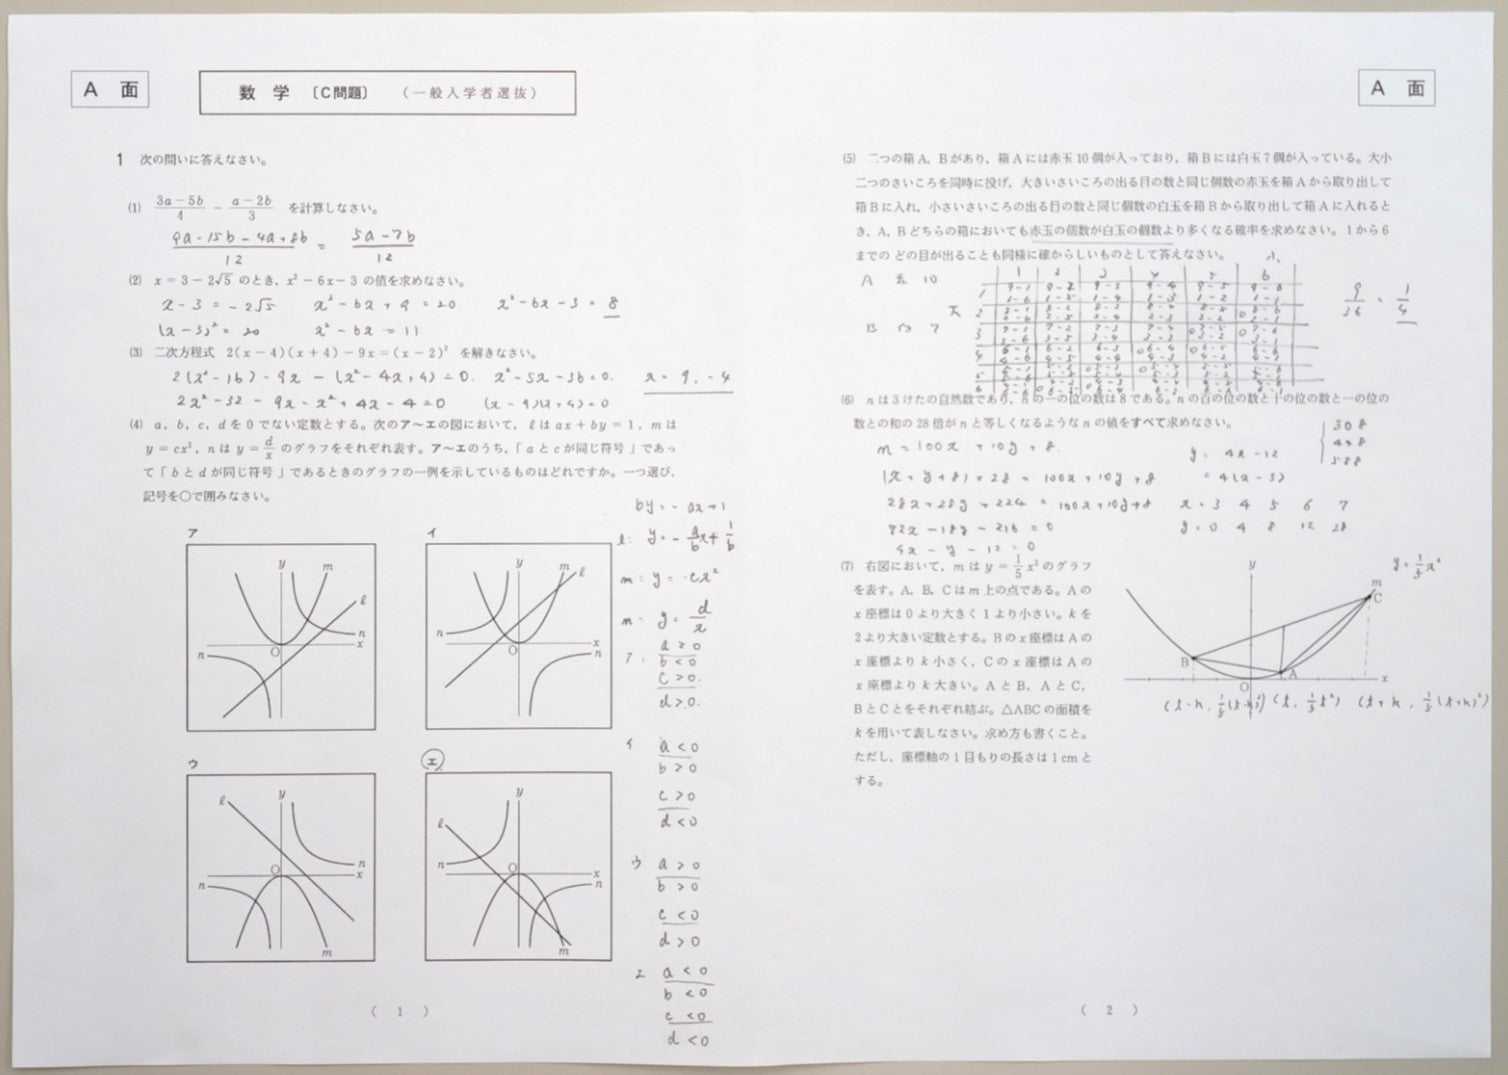 A 面
数 学 〔C問題〕 （一般入学者選抜）
1 次の問いに答えなさい。
(1) (3a－5b)/4 － (a－2b)/3 を計算しなさい。
(9a-15b-4a+8b)/12 = (5a-7b)/12
(2) x＝3－2√5 のとき，x²－6x－3 の値を求めなさい。
x-3=-2√5 x²-6x+9=20 x²-6x-3=8
(x-3)²=20 x²-6x=11
(3) 二次方程式 2(x－4)(x＋4)－9x＝(x－2)² を解きなさい。
2(x²-16)-9x-(x²-4x+4)=0. x²-5x-36=0. x=9,-4
2x²-32-9x-x²+4x-4=0 (x-9)(x+4)=0
(4) a，b，c，d を 0 でない定数とする。次のア～エの図において，ℓ は ax＋by＝1，m は
y＝cx²，n は y＝d/x のグラフをそれぞれ表す。ア～エのうち，「a と c が同じ符号」であっ
て「b と d が同じ符号」であるときのグラフの一例を示しているものはどれですか。一つ選び，
記号を○で囲みなさい。
by=-ax+1
ℓ: y=-a/b x+1/b
m: y=cx²
n: y=d/x
ア
y
m
ℓ
n
x
O
n
イ
y
m
ℓ
n
x
O
n
ウ
ℓ
y
O
n
x
n
m
エ
y
ℓ
n
O
x
n
m
ア: a>0
b<0
c>0.
d>0.
イ a<0
b>0
c>0
d<0
ウ a>0
b>0
c<0
d>0
エ a<0
b<0
c<0
d<0
( 1 )
A 面
(5) 二つの箱A，Bがあり，箱Aには赤玉10個が入っており，箱Bには白玉7個が入っている。大小
二つのさいころを同時に投げ，大きいさいころの出る目の数と同じ個数の赤玉を箱Aから取り出して
箱Bに入れ，小さいさいころの出る目の数と同じ個数の白玉を箱Bから取り出して箱Aに入れると
き，A，Bどちらの箱においても赤玉の個数が白玉の個数より多くなる確率を求めなさい。1から6
までのどの目が出ることも同様に確からしいものとして答えなさい。
小
A 赤 10
大
B 白 7
1 2 3 4 5 6
1 9-1 9-2 9-3 9-4 9-5 9-6
9/36 = 1/4
(6) n は3けたの自然数であり，n の一の位の数は8である。n の百の位の数と十の位の数と一の位の
数との和の28倍が n と等しくなるような n の値をすべて求めなさい。
308
448
588
n=100x+10y+8.
y=4x-12
(x+y+8)×28=100x+10y+8
=4(x-3)
28x+28y+224=100x+10y+8
x=3 4 5 6 7
72x-18y-216=0
y=0 4 8 12
4x-y-12=0
(7) 右図において，m は y＝1/5 x² のグラフ
を表す。A，B，Cは m 上の点である。Aの
x 座標は0より大きく1より小さい。k を
2より大きい定数とする。Bの x 座標はAの
x 座標より k 小さく，Cの x 座標はAの
x 座標より k 大きい。AとB，AとC，
BとCとをそれぞれ結ぶ。△ABCの面積を
k を用いて表しなさい。求め方も書くこと。
ただし，座標軸の1目もりの長さは1cmと
する。
y=1/5x²
y
m
C
B
A
O
x
(t-k, 1/5(t-k)²) (t, 1/5t²) (t+k, 1/5(t+k)²)
( 2 )